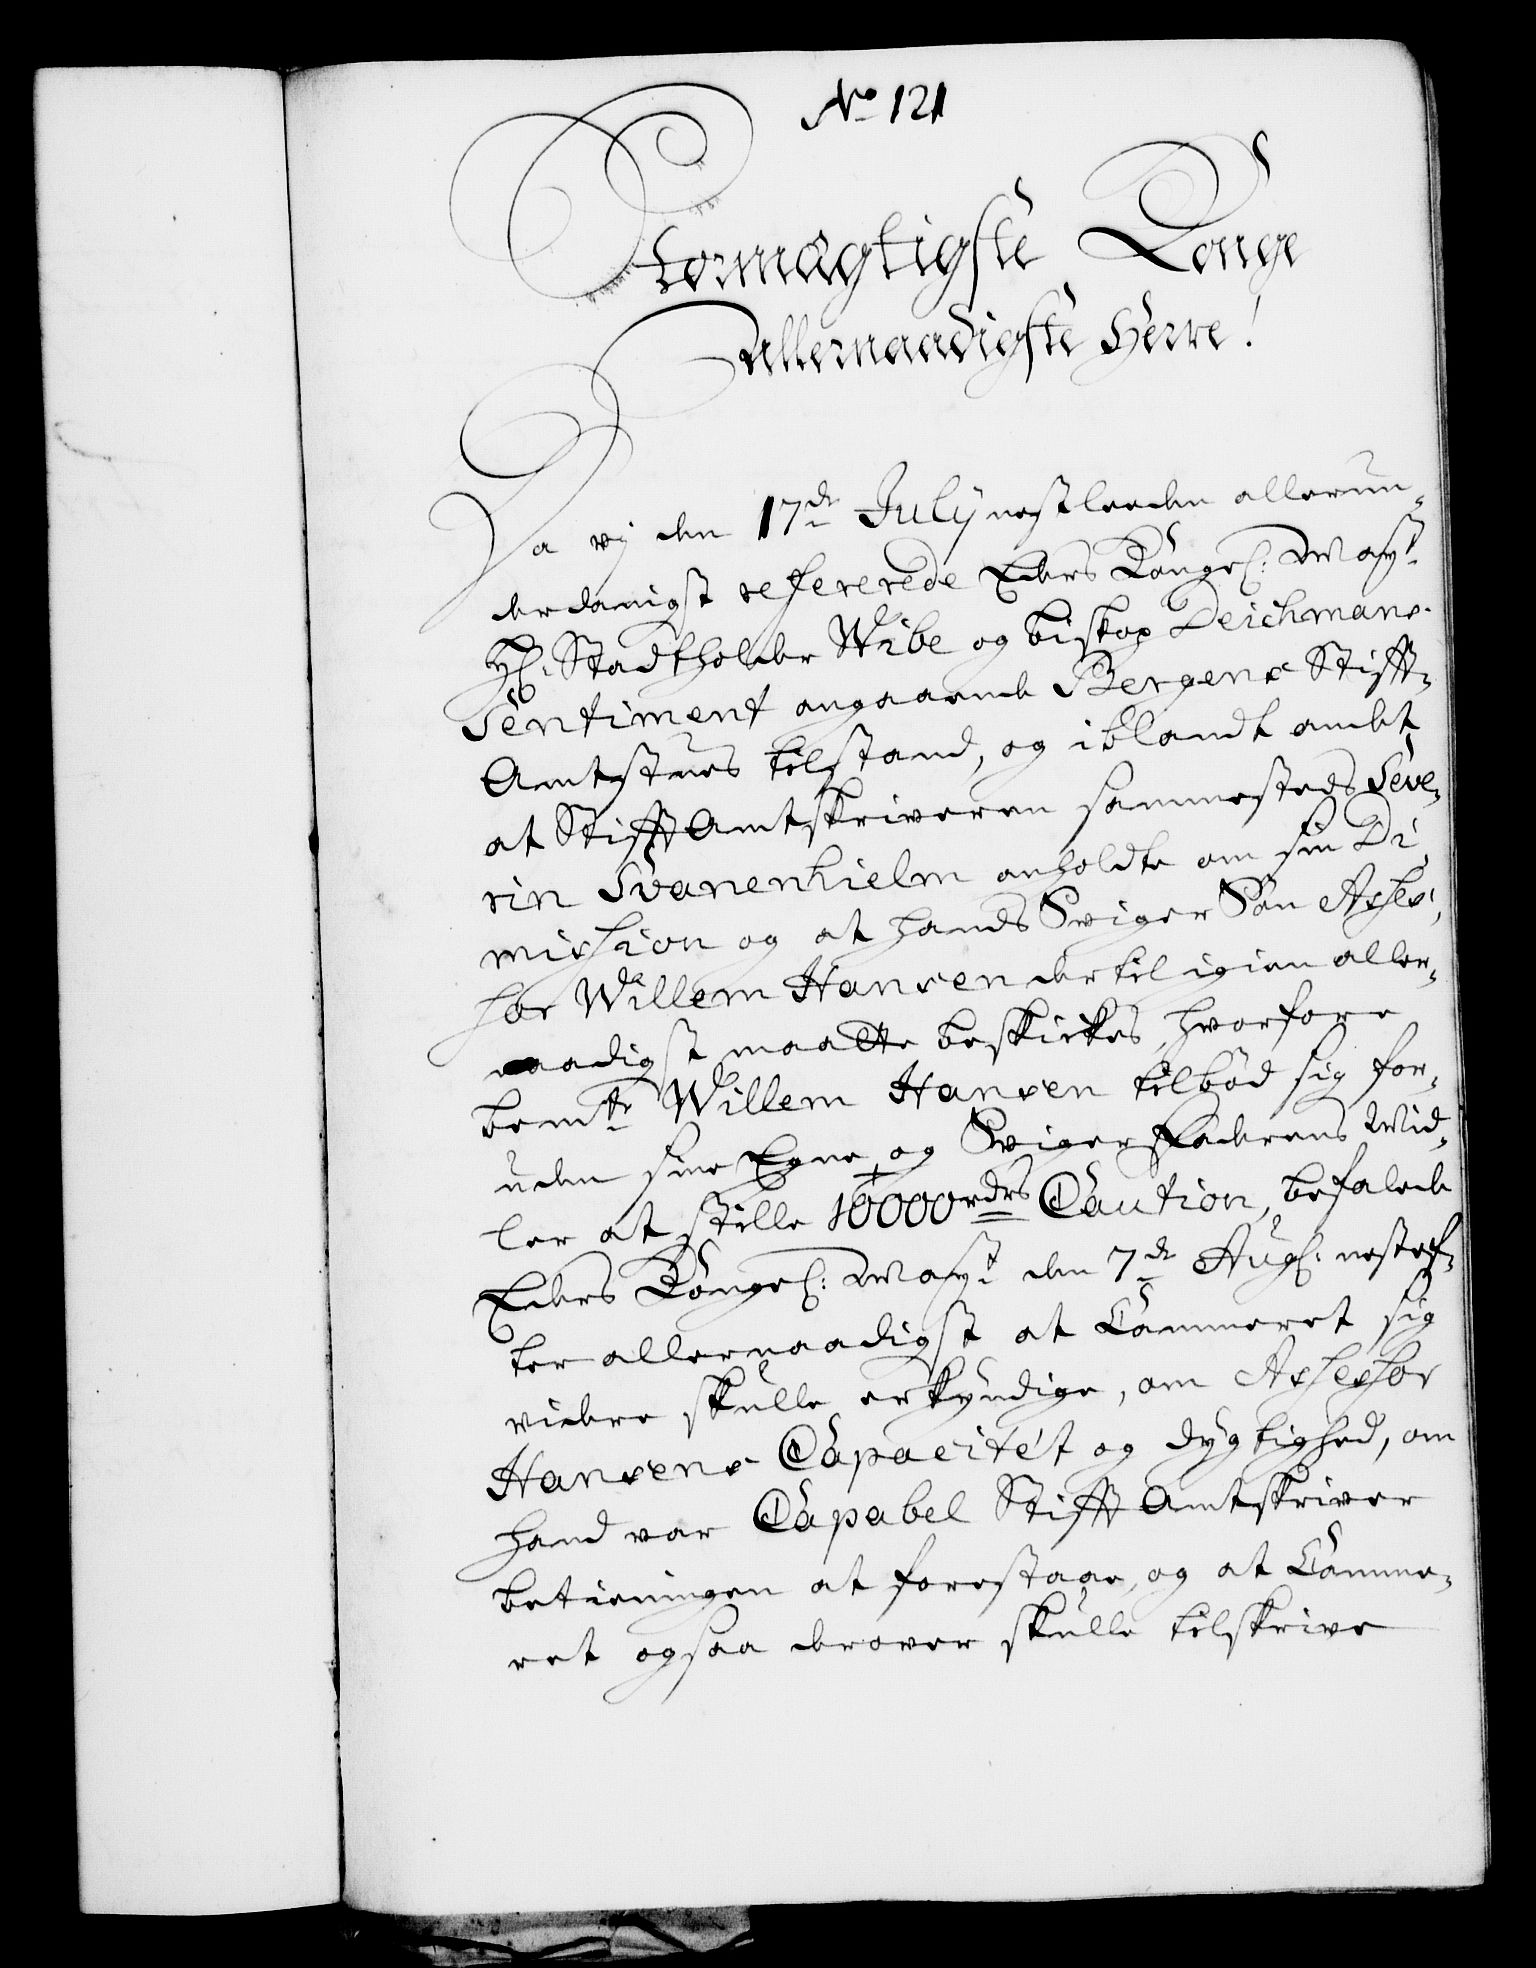 No 121
Stormægtigste Konge
allernaadigste Herre!
Da vj den 17de July nestleeden allerun-
derdanigst refererede Eders Kongel: Mayt
Hl. Stadtholder Wibe og biskop Deichmans
Sentiment angaaende Bergens Stiffts
Amtstues tilstand, og iblandt andet
at Stifft Amtskriveren sammesteds Seve-
rin Svanenhielm anholdte om sin Di-
mission og at hands Sviger Søn Asses-
sor Willem Hansen dertil igien aller-
naadigst maatte beskickes, hvorfore
bemte Willem Hansen tilbød sig for-
uden sine Egne og Sviger Faderens Mid-
ler at stille 10000 rdrs Caution, befalede
Eders Kongel: Mayt den 7de Aug: nestef-
ter allernaadigst at Cammeret sig
videre skulle erkyndige, om Assessor
Hansens Capacitét og dygtighed, om
hand var Capabel Stifft Amtskriver
betieningen at forestaae, og at Camme-
ret ogsaa derover skulle tilskrive